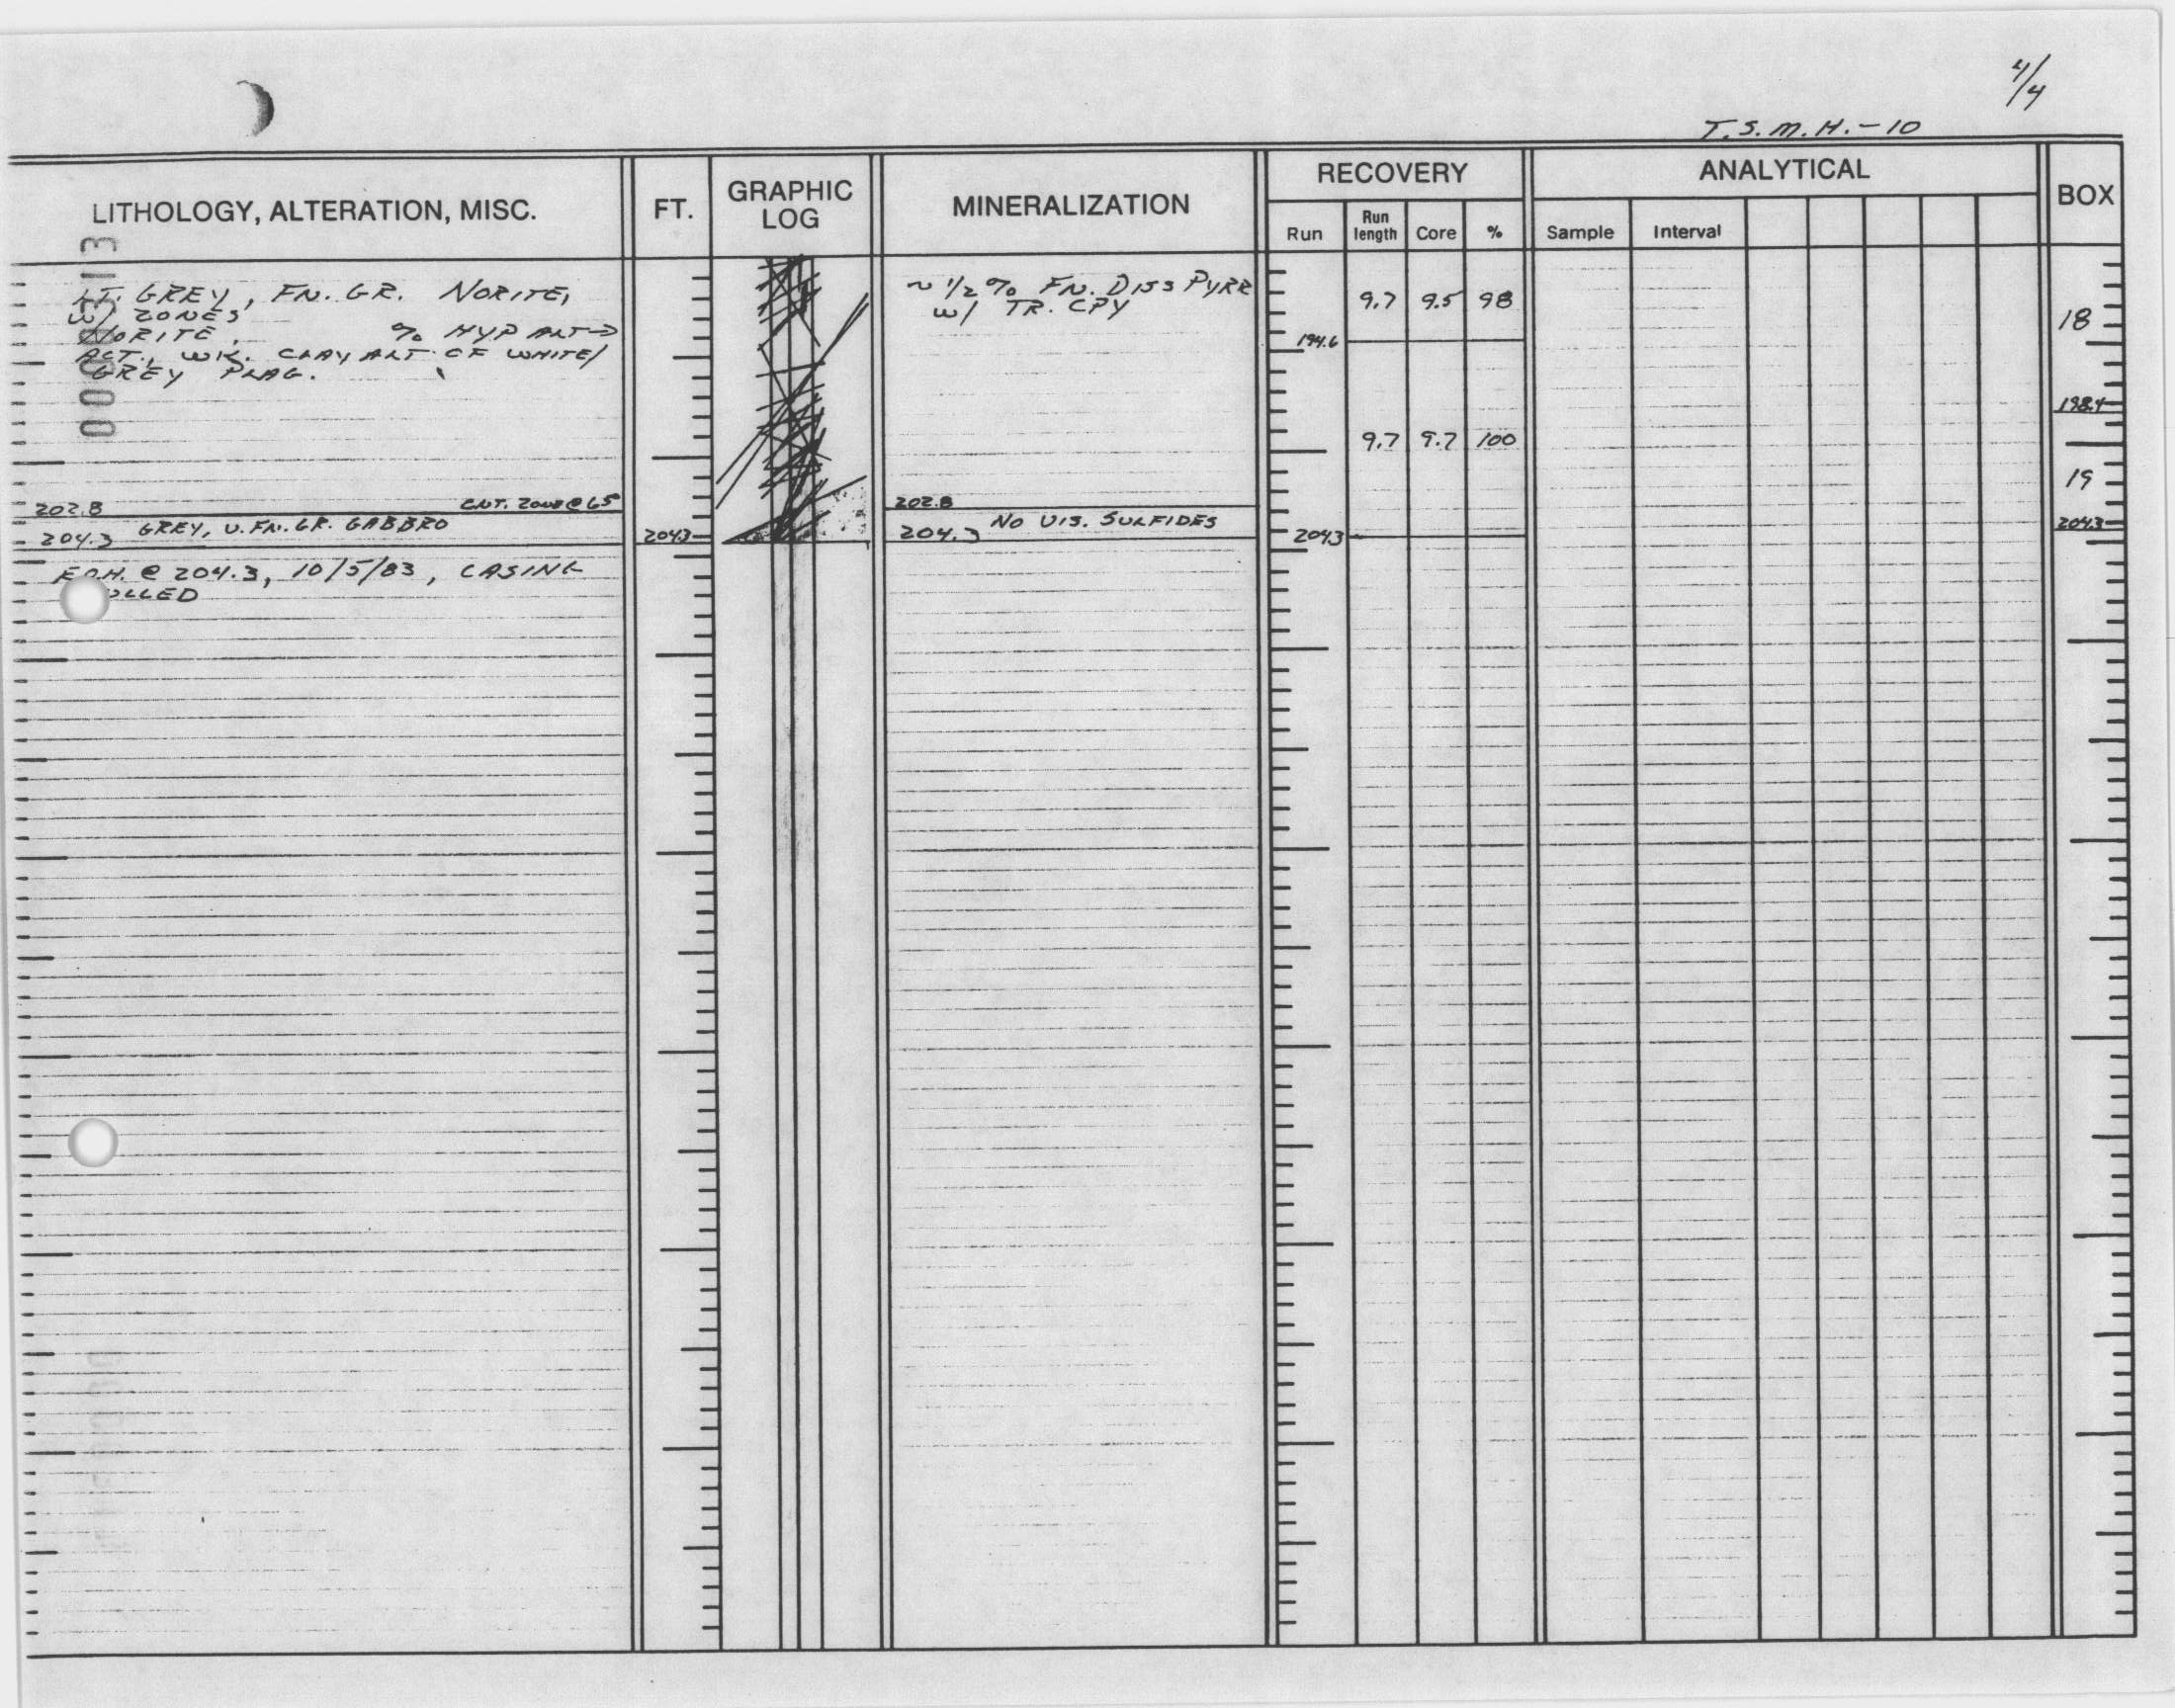 4/4
T.S.M.H.-10
LITHOLOGY, ALTERATION, MISC.
FT.
GRAPHIC LOG
MINERALIZATION
RECOVERY
Run
Run length
Core
%
ANALYTICAL
Sample
Interval
BOX
LT. GREY, FN. GR. NORITE,
W/ ZONES
NORITE, % HYP ALT→
ACT., WK. CLAY ALT OF WHITE/
GREY PLAG.
202.8 CNT. ZONE @ 65
GREY, V. FN. GR. GABBRO
204.3
E.O.H. @ 204.3, 10/5/83, CASING
204.3
~ 1/2 % FN. DISS PYRR
W/ TR. CPY
202.8
NO VIS. SULFIDES
204.3
9.7 9.5 98
194.6
9.7 9.7 100
204.3
18
198.4
19
204.3